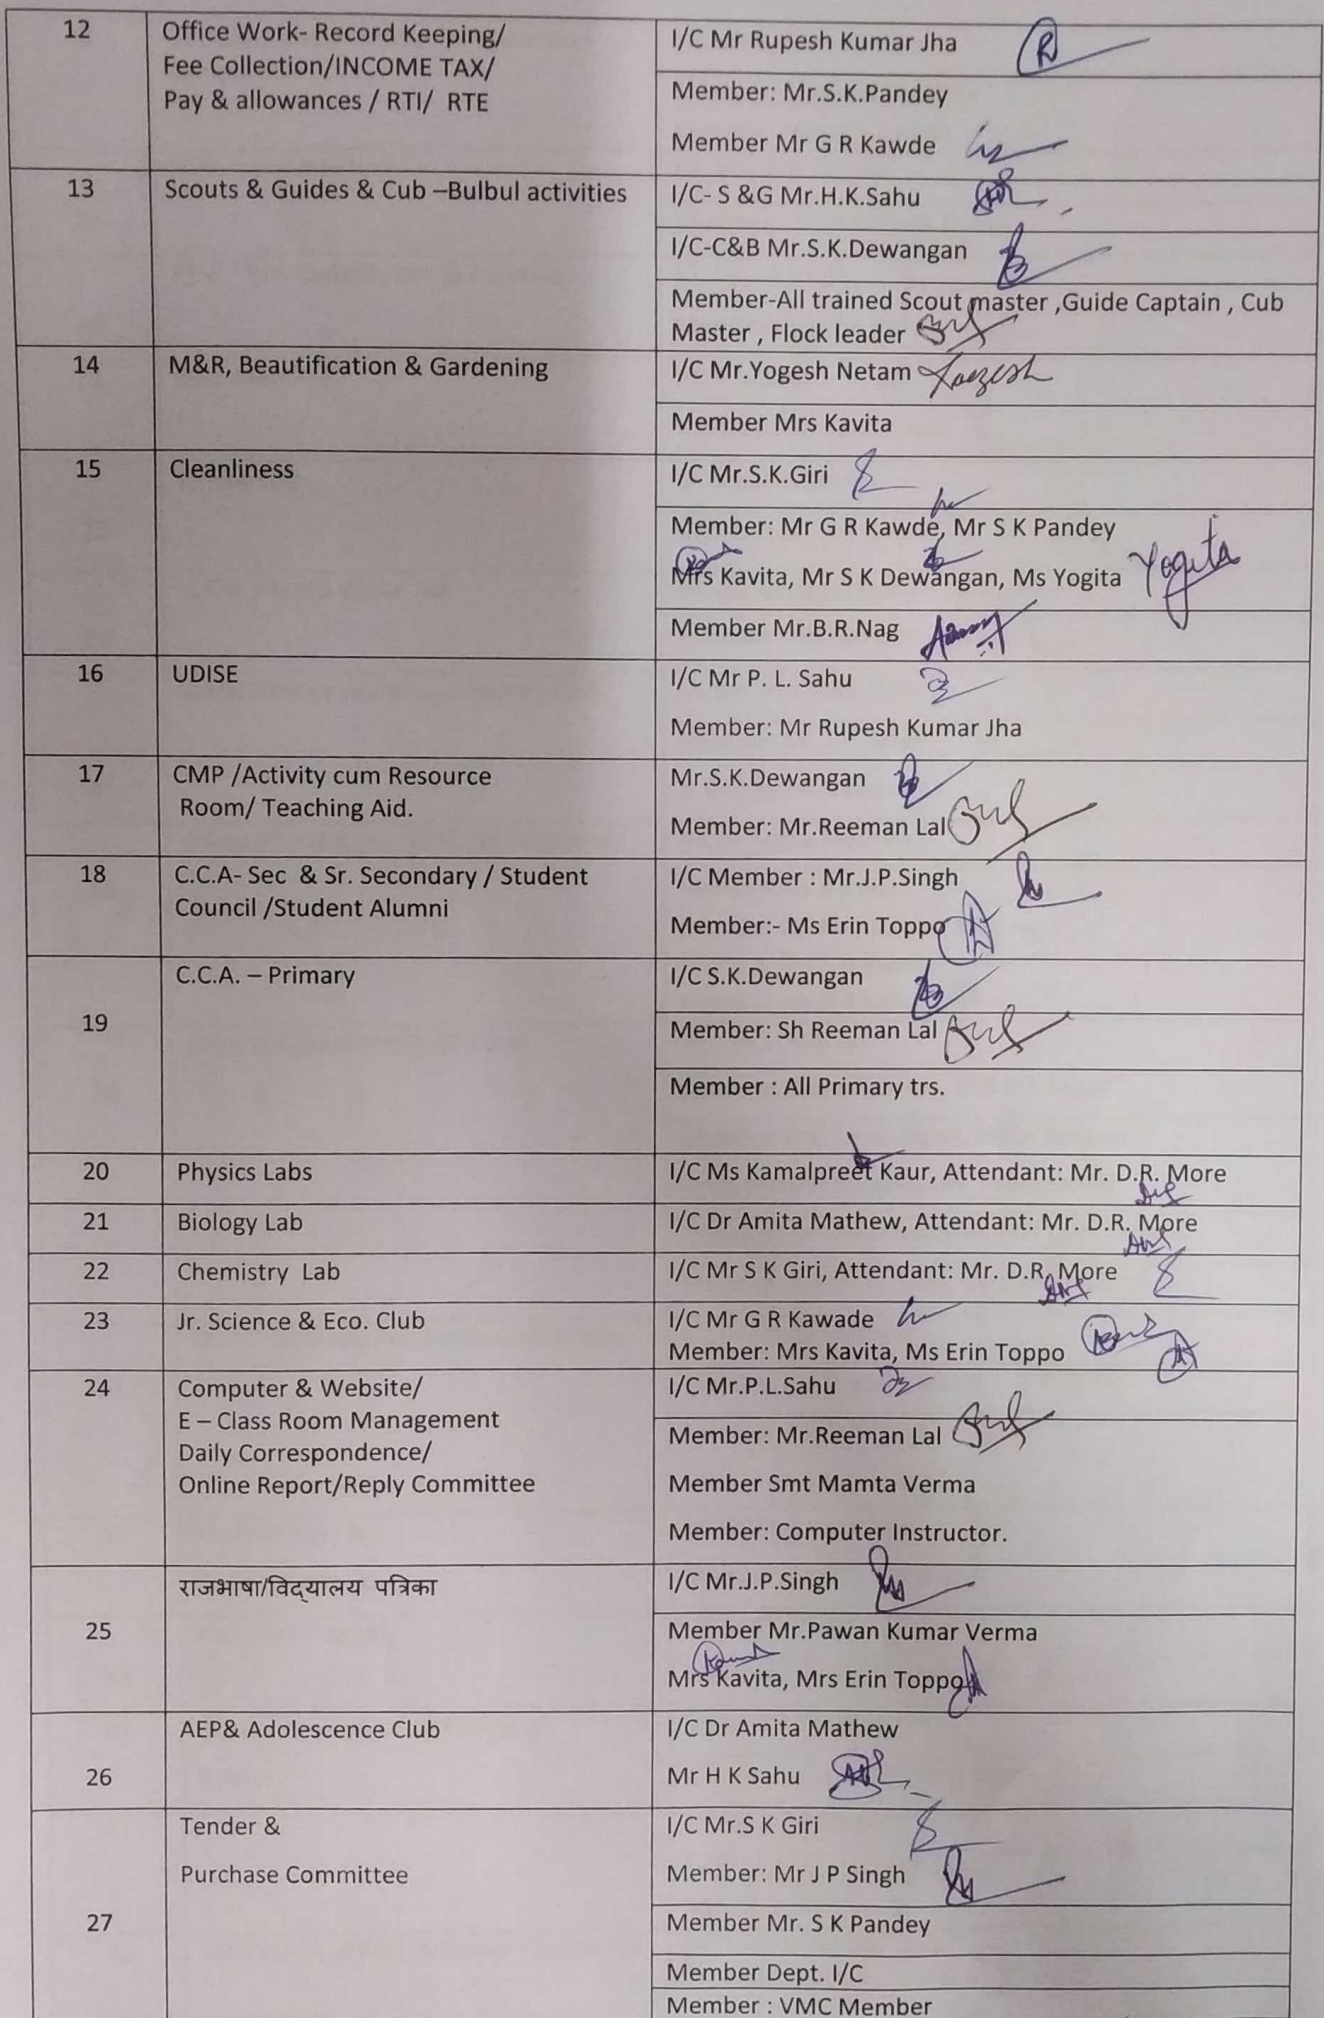 12
Office Work- Record Keeping/
Fee Collection/INCOME TAX/
Pay & allowances / RTI/ RTE
I/C Mr Rupesh Kumar Jha
Member: Mr.S.K.Pandey
Member Mr G R Kawde
13
Scouts & Guides & Cub –Bulbul activities
I/C- S &G Mr.H.K.Sahu
I/C-C&B Mr.S.K.Dewangan
Member-All trained Scout master ,Guide Captain , Cub
Master , Flock leader
14
M&R, Beautification & Gardening
I/C Mr.Yogesh Netam
Member Mrs Kavita
15
Cleanliness
I/C Mr.S.K.Giri
Member: Mr G R Kawde, Mr S K Pandey
Mrs Kavita, Mr S K Dewangan, Ms Yogita Yogita
Member Mr.B.R.Nag
16
UDISE
I/C Mr P. L. Sahu
Member: Mr Rupesh Kumar Jha
17
CMP /Activity cum Resource
Room/ Teaching Aid.
Mr.S.K.Dewangan
Member: Mr.Reeman Lal
18
C.C.A- Sec & Sr. Secondary / Student
Council /Student Alumni
I/C Member : Mr.J.P.Singh
Member:- Ms Erin Toppo
19
C.C.A. – Primary
I/C S.K.Dewangan
Member: Sh Reeman Lal
Member : All Primary trs.
20
Physics Labs
I/C Ms Kamalpreet Kaur, Attendant: Mr. D.R. More
21
Biology Lab
I/C Dr Amita Mathew, Attendant: Mr. D.R. More
22
Chemistry Lab
I/C Mr S K Giri, Attendant: Mr. D.R. More
23
Jr. Science & Eco. Club
I/C Mr G R Kawade
Member: Mrs Kavita, Ms Erin Toppo
24
Computer & Website/
E – Class Room Management
Daily Correspondence/
Online Report/Reply Committee
I/C Mr.P.L.Sahu
Member: Mr.Reeman Lal
Member Smt Mamta Verma
Member: Computer Instructor.
25
राजभाषा/विद्यालय पत्रिका
I/C Mr.J.P.Singh
Member Mr.Pawan Kumar Verma
Mrs Kavita, Mrs Erin Toppo
26
AEP& Adolescence Club
I/C Dr Amita Mathew
Mr H K Sahu
27
Tender &
Purchase Committee
I/C Mr.S K Giri
Member: Mr J P Singh
Member Mr. S K Pandey
Member Dept. I/C
Member : VMC Member